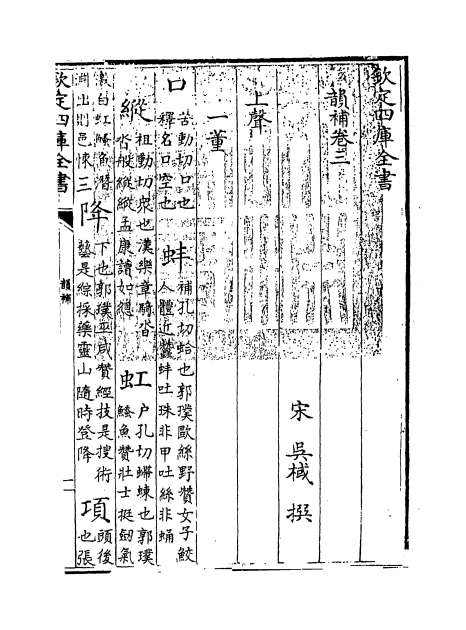 欽定四庫全書
韻補卷三
宋 吳棫 撰
上聲
一董
口 苦動切口也釋名口空也 蚌 補孔切蛤也郭璞歐絲野贊女子鮫人體近蠶蚌吐珠非甲吐絲非蛹
縱 祖動切衆也漢樂章騎沓沓般縱縱孟康讀如 虹 户孔切螮蝀也郭璞鰧魚贊壯士挺劒氣
激白虹鰧魚潛淵出則邑悚三 降 下也郭璞巫咸贊經技是搜術藝是綜採藥靈山隨時登降 項 頭後也張
欽定四庫全書 韻補 一